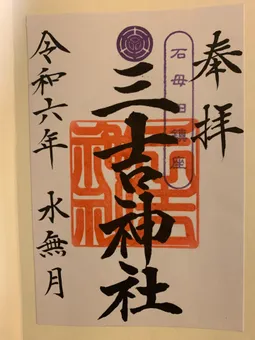 奉拝
石母田鎮座
三吉神社
令和六年 水無月